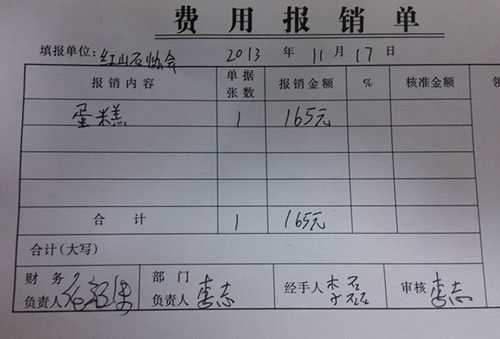 费用报销单
填报单位: 红山石协会 2013 年 11 月 17 日
报销内容 单据张数 报销金额 % 核准金额 领
蛋糕 1 165元
合计 1 165元
合计(大写)
财务负责人 部门负责人 李志 经手人 李磊 审核 李志